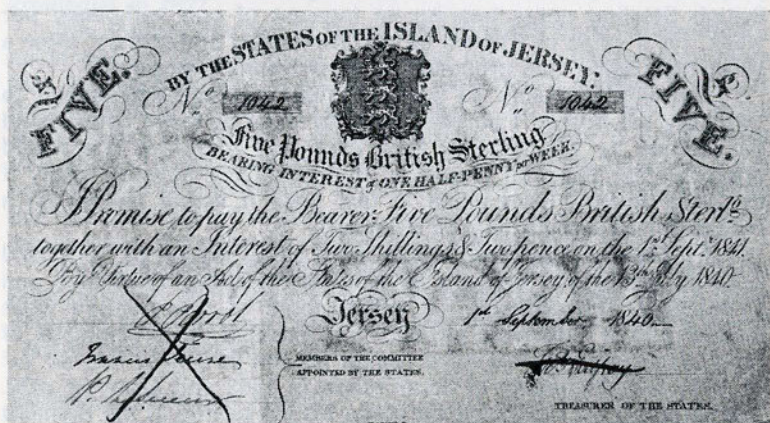 BY THE STATES OF THE ISLAND OF JERSEY.
FIVE. FIVE.
No. 1042 No. 1042
Five Pounds British Sterling
BEARING INTEREST of ONE HALF-PENNY per WEEK.
I Promise to pay the Bearer Five Pounds British Sterlg.
together with an Interest of Two Shillings & Twopence on the 1st Sept. 1841.
By Virtue of an Act of the States of the Island of Jersey of the 13th July 1840.
Jersey 1st September 1840
MEMBERS OF THE COMMITTEE
APPOINTED BY THE STATES.
TREASURER OF THE STATES.